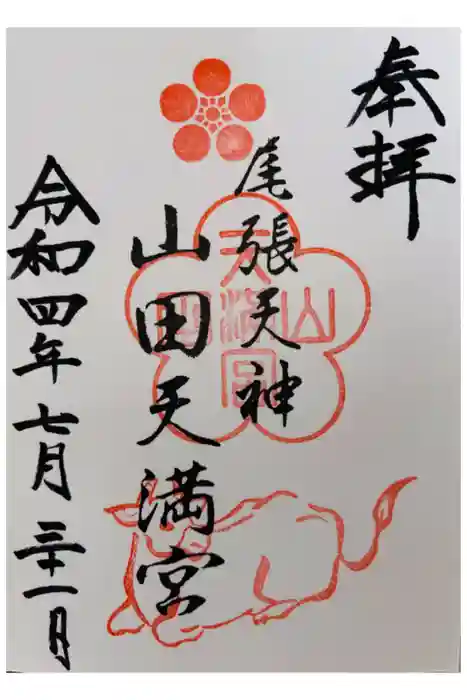 奉拝
尾張天神
山田天満宮
令和四年七月三十一月
天満宮
山
田